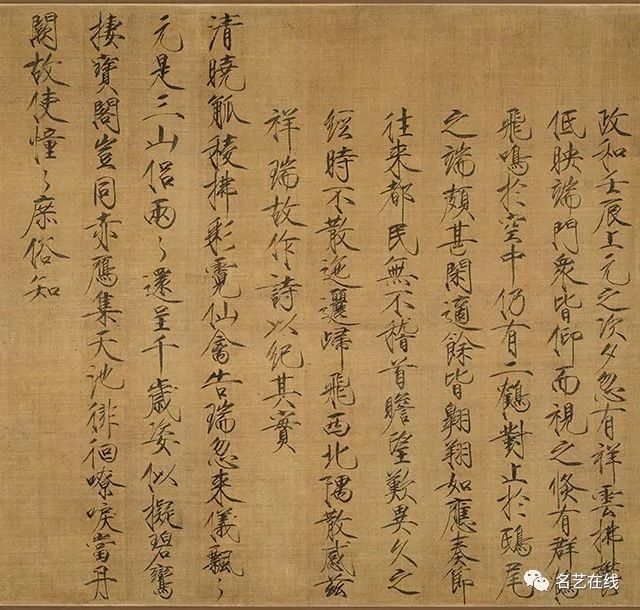 政和壬辰上元之次夕忽有祥雲拂鬱
低映端門衆皆仰而視之倏有群鶴
飛鳴於空中仍有二鶴對止於鴟尾
之端頗甚閑適餘皆翱翔如應奏節
往來都民無不稽首瞻望歎異久之
經時不散迤邐歸飛西北隅散感茲
祥瑞故作詩以紀其實
清曉觚稜拂彩霓仙禽告瑞忽來儀飄々
元是三山侶兩々還呈千歲姿似擬碧鸞
棲寶閣豈同赤鴈集天池徘徊嘹唳當丹
闕故使憧々庶俗知
名艺在线